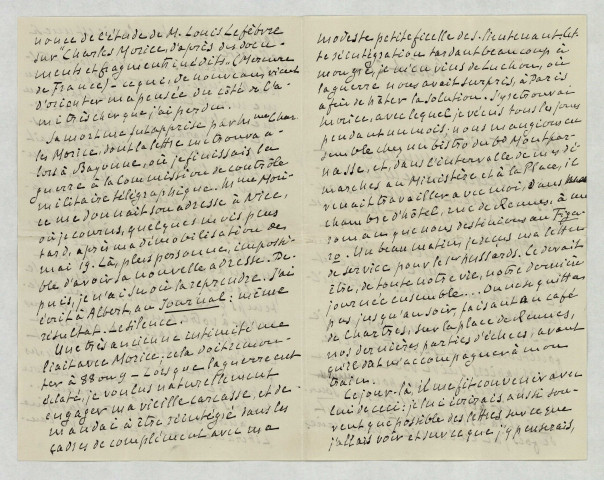 nonce de l'étude de M. Louis Lefèbvre
sur "Charles Morice, d'après des docu-
ments et fragments inédits. (Mercure
de France) – ce qui, de nouveau, vient
d'orienter ma pensée du côté de l'a-
mi très cher que j'ai perdu.
Sa mort me fut apprise par Mme Char-
les Morice, dont la lettre me trouva a-
lors à Bayonne, où je finissais la
guerre à la Commission de contrôle
militaire télégraphique. Mme Mori-
ce me donnait son adresse à Nice,
où je courus, quelques mois plus
tard, après ma démobilisation de
mai 19. Là, plus personne, impossi-
ble d'avoir sa nouvelle adresse. De-
puis, je n'ai su où la reprendre. J'ai
écrit à Albert, au Journal : même
résultat. Le silence.
Une très ancienne intimité me
liait avec Morice ; cela doit remon-
ter à 88 ou 9 – Lorsque la guerre eut
éclaté, je voulus naturellement
engager ma vieille carcasse, et de-
mandai à être réintégré dans les
cadres de complément avec ma
modeste petite ficelle de s.-lieutenant. Cet-
te réintégration tardant beaucoup à
mon gré, je m'en vins de Luchon, où
la guerre nous avait surpris, à Paris
afin de hâter la solution. J'y retrouvai
Morice, avec lequel je vécus tous les jours
pendant un mois, nous mangions en-
semble chez un bistro du bd Montpar-
nasse, et, dans l'intervalle de mes dé-
marches au Ministère et à la Place, il
venait travailler avec moi, dans ma
chambre d'hôtel, rue de Rennes, à un
roman que nous destinions au Figa-
ro. Un beau matin, je reçus ma lettre
de service pour les hussards. Ce devait
être, de toute notre vie, notre dernière
journée ensemble... On ne se quitta
pas jusqu'au soir, faisant au café
de Chartres, sur la place de Rennes,
nos dernières parties d'échecs, avant
qu'il dût m'accompagner à mon
train.
Ce jour-là, il me fit convenir avec
lui de ceci : je lui écrirais aussi sou-
vent que possible des lettres sur ce que
j'allais voir et sur ce que j'y penserais,